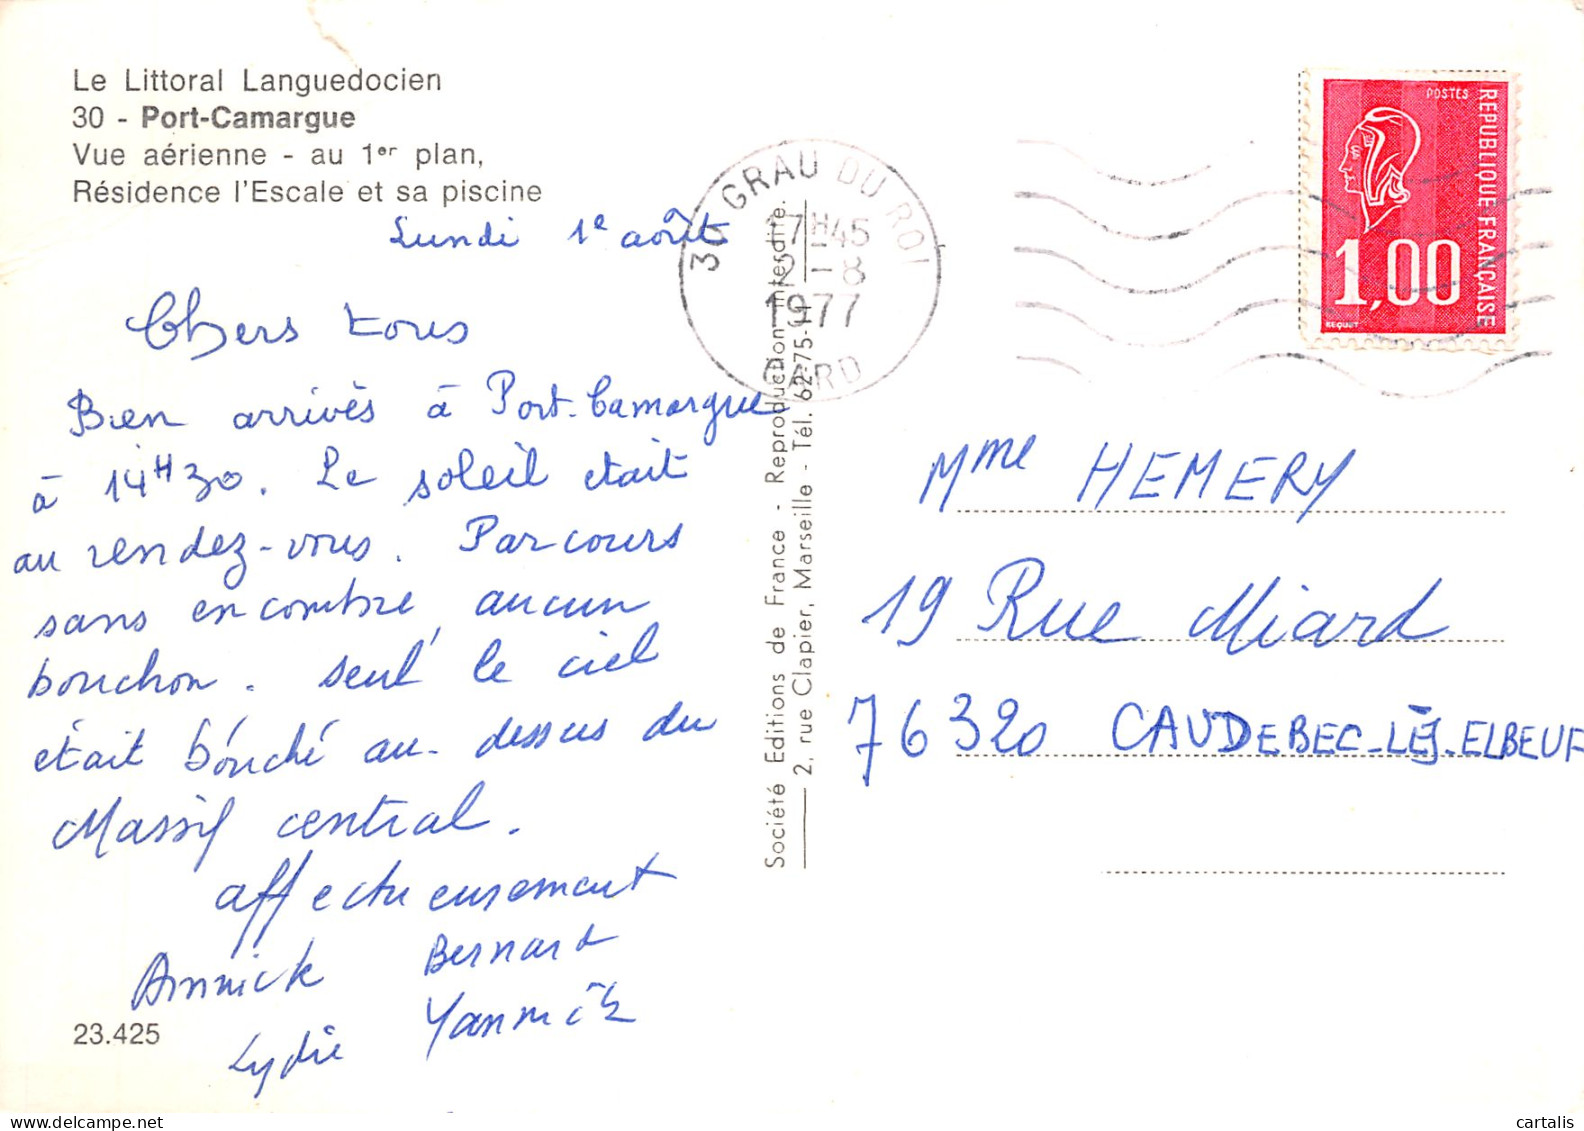 Le Littoral Languedocien
30 - Port-Camargue
Vue aérienne - au 1er plan,
Résidence l'Escale et sa piscine
Lundi 1e août
Chers tous
Bien arrivés à Port-Camargue
à 14H30. Le soleil etait
au rendez-vous. Parcours
sans encombre, aucun
bouchon. Seul le ciel
était bouché au-dessus du
Massif central.
affectueusement
Annick Bernard
Lydie Yannick
23.425
Société Editions de France - Reproduction interdite.
2, rue Clapier, Marseille - Tél. 62-75-11
30 GRAU DU ROI
17H45
2-8
1977
GARD
POSTES
REPUBLIQUE FRANÇAISE
1,00
BEQUET
Mme HEMERY
19 Rue Miard
76320 CAUDEBEC-LÈS-ELBEUF
cartalis
www.delcampe.net